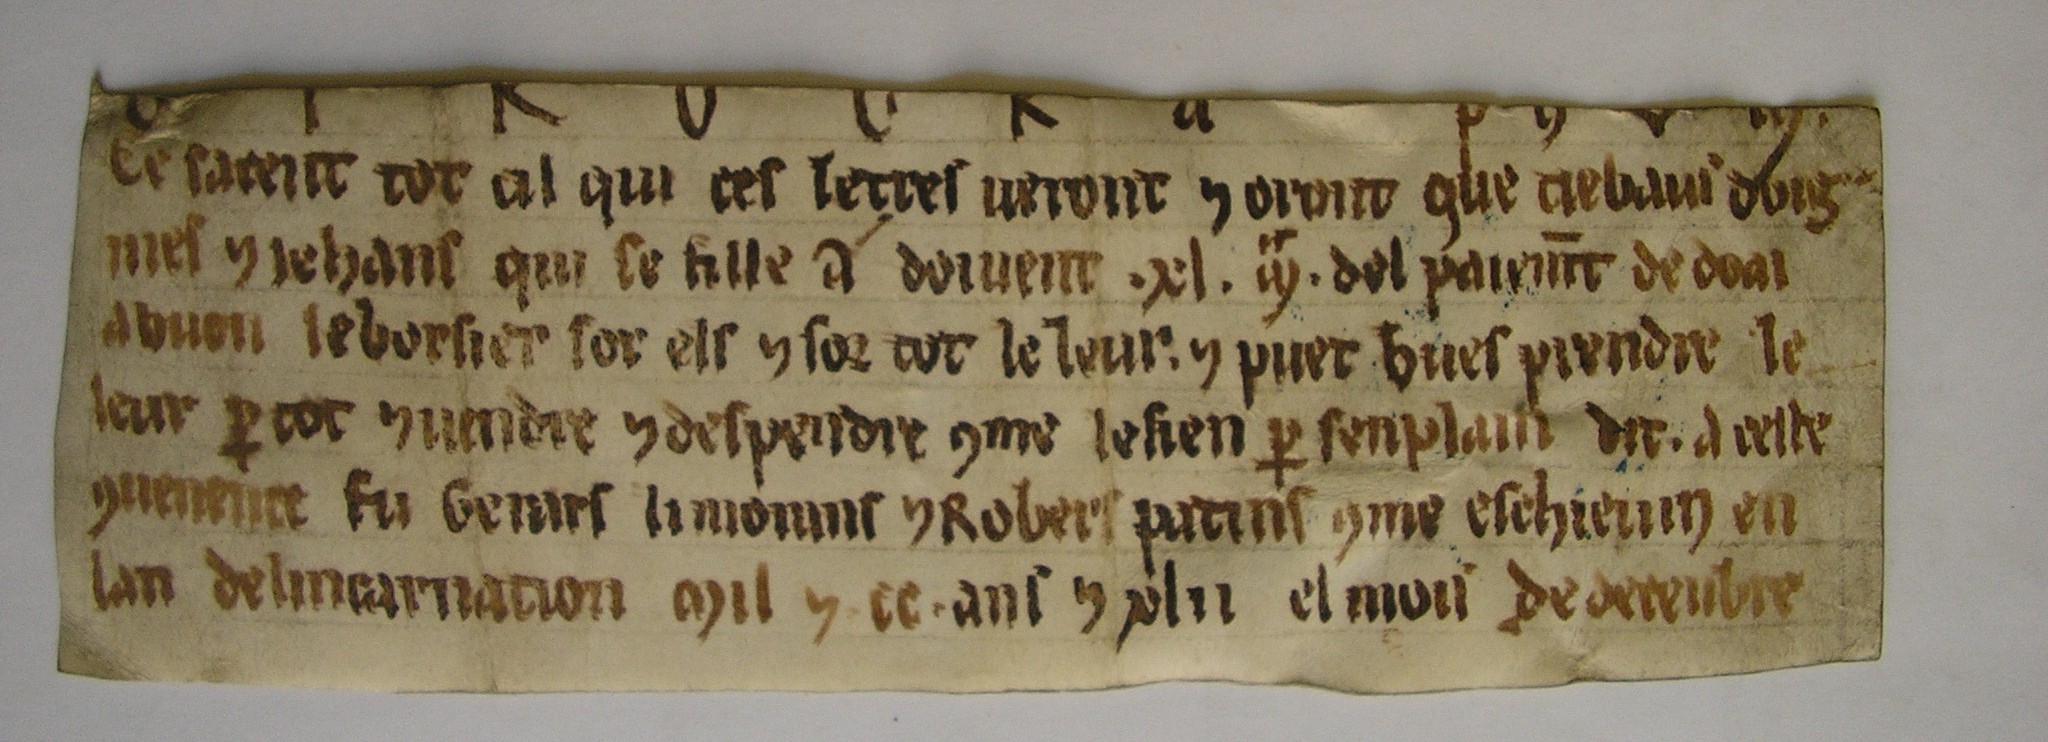 C I R O G R A P H U M
Ce sacent tot cil qui ces lettres ueront ⁊ oront que tiebaus doig
nies ⁊ iehans qui se fille a doiuent .xl. m̃. del paiem̄t de doai
a huon le borsier sor els ⁊ sor tot le leur. ⁊ puet hues prendre le
leur ꝑ tot ⁊ uendre ⁊ despendre ꝯme le sien ꝑ sen plain dit. a ceste
ꝯuenence fu Gerars li monins ⁊ Robers patins ꝯme eschieuin en
lan delincarnation mil ⁊ .cc. ans ⁊ xlii el mois de decenbre